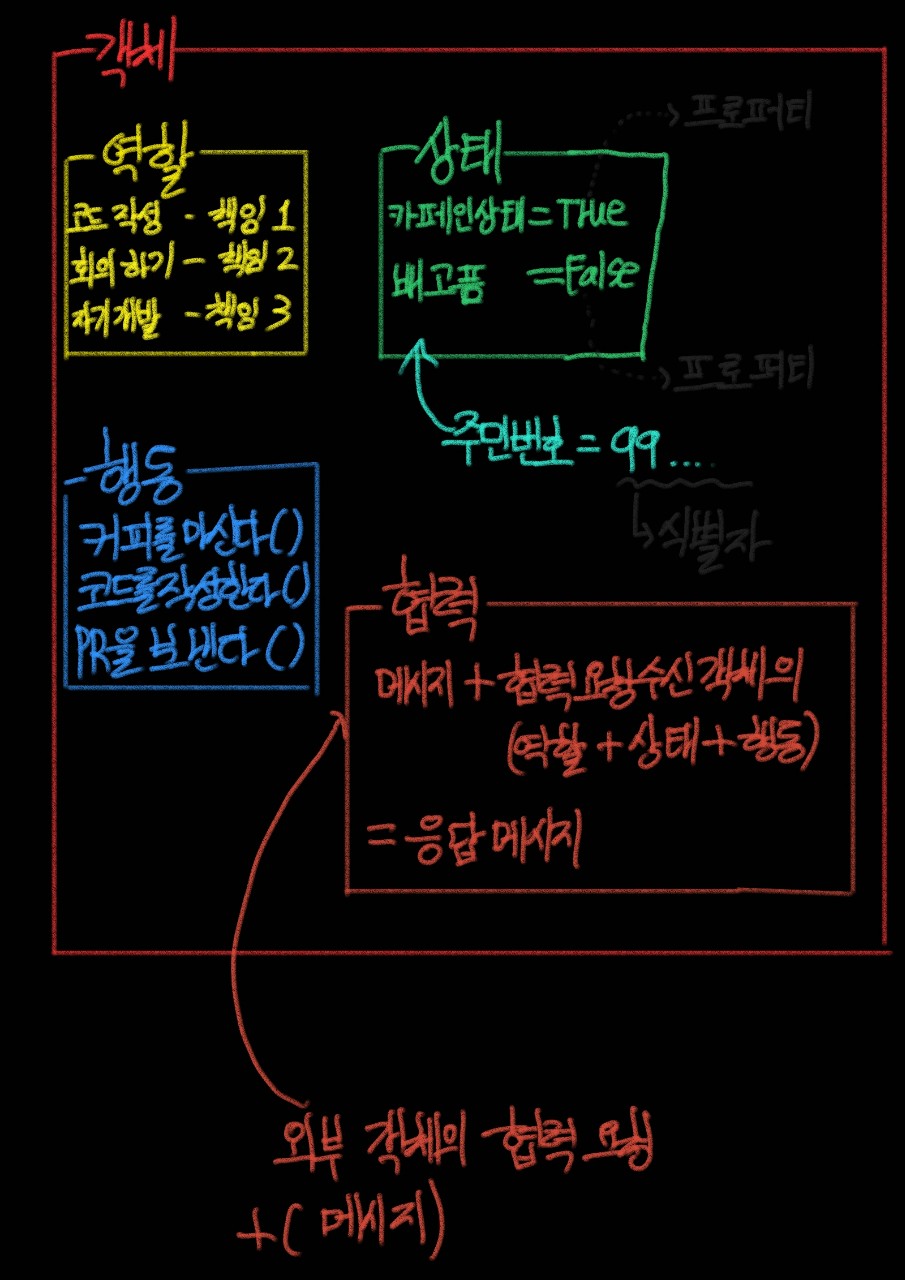 객체
역할
코드 작성 - 책임 1
회의 하기 - 책임 2
자기개발 - 책임 3
상태
카페인상태 = True
배고픔 = False
프로퍼티
프로퍼티
주민번호 = 99....
식별자
행동
커피를 마신다 ()
코드를 작성한다 ()
PR을 보낸다 ()
협력
메시지 + 협력 요청 수신 객체의
(역할 + 상태 + 행동)
= 응답 메시지
외부 객체의 협력 요청
+ ( 메시지 )